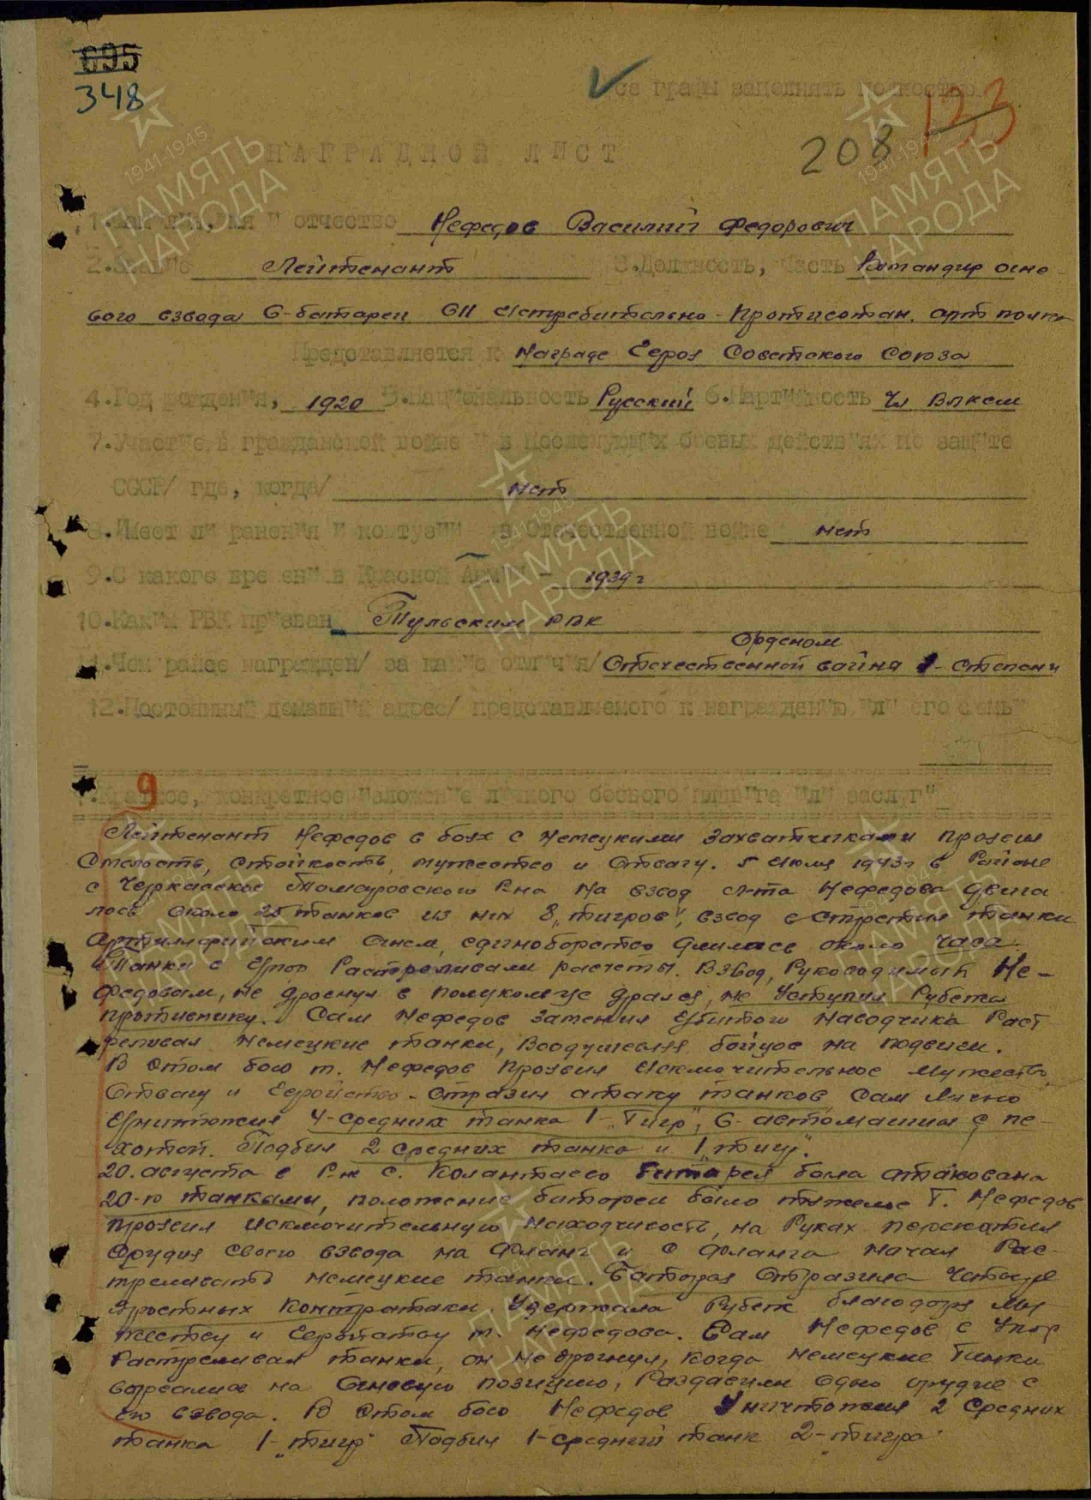 695
348
все графы заполнять полностью
208 123
НАГРАДНОЙ ЛИСТ
1. Фамилия, имя и отчество Нефедов Василий Федорович
2. Звание Лейтенант 3. Должность, часть Командир огне-
вого взвода 6-батареи 611 истребительно-противотан. арт полка
Представляется к награде Героя Советского Союза
4. Год рождения, 1920 5. Национальность Русский 6. Партийность Чл ВЛКСМ
7. Участие в гражданской войне и в последующих боевых действиях по защите
СССР/ где, когда/ нет
8. Имеет ли ранения и контузии в Отечественной войне нет
9. С какого времени в Красной Армии - 1939 г
10. Каким РВК призван Тульским РВК
Орденом
11. Чем ранее награжден/ за какие отличия/ Отечественной война 1-степени
12. Постоянный домашний адрес/ представляемого к награждению или его семьи
9
1. Краткое, конкретное изложение личного боевого подвига или заслуг
Лейтенант Нефедов в боях с немецкими захватчиками проявил
Смелость, стойкость, мужество и Отвагу. 5 июля 1943г в Районе
с Черкасское Томаровского Р-на на взвод л-та Нефедова двига
лось около 25 танков из них 8 "тигров", взвод встретил танки
Артиллерийским огнем, единоборство длилось около часа.
Танки в упор Растреливали расчеты. Взвод, Руководимый Не-
федовым, не дрогнул в полукольце дрался, не уступил Рубежа
противнику. Сам Нефедов заменил убитого наводчика Раст
реливал немецкие танки, воодушевляя бойцов на подвиги.
В этом бою т. Нефедов проявил исключительное мужество,
Отвагу и Геройство. Отразил атаку танков Сам лично
уничтожил 4-средних танка 1-"Тигр", 6-автомашин с пе-
хотой. Подбил 2 средних танка и 1 "тигр".
20. августа в Р-не с. Колантаево батарея была атакована
20-ю танками, положение батареи было тяжелое Т. Нефедов
проявил исключительную находчивость, на Руках перекатил
Орудия своего взвода на Фланг и с фланга начал Рас-
треливать немецкие танки. Батарея Отразила четыре
яростных контратаки. Удержала Рубеж благодаря му
жеству и Геройству т. Нефедова. Сам Нефедов в упор
Растреливал танки, он не дрогнул, когда немецкие Танки
ворвались на Огневую позицию, Раздавили Одно орудие с
его взвода. В этом бою Нефедов Уничтожил 2 средних
танка 1-"тигр" Подбил 1-средний танк 2-тигра.
1941-1945
ПАМЯТЬ
НАРОДА